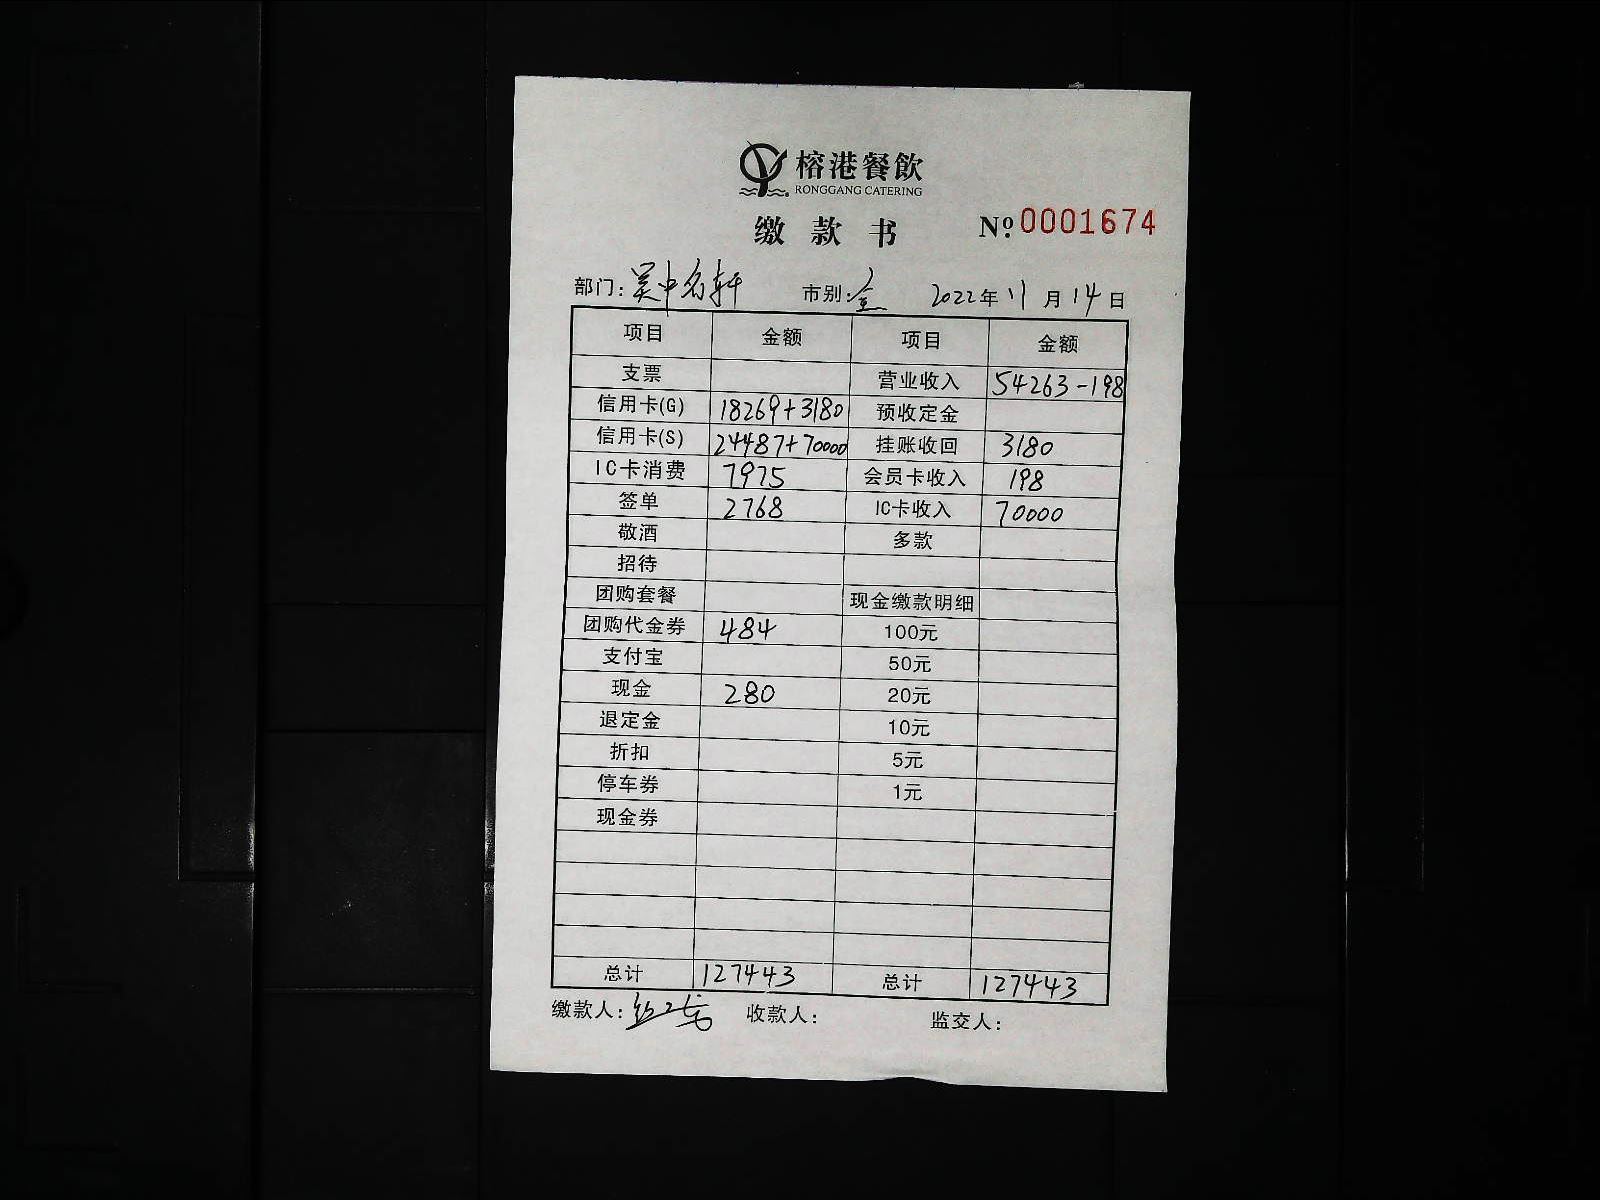 榕港餐飲
RONGGANG CATERING
缴款书 Nº 0001674
部门: 吴中名轩 市别: 2022年 11月 14日
项目 金额 项目 金额
支票 营业收入 54263-198
信用卡(G) 18269+3180 预收定金
信用卡(S) 24487+70000 挂账收回 3180
IC卡消费 7975 会员卡收入 198
签单 2768 IC卡收入 70000
敬酒 多款
招待
团购套餐 现金缴款明细
团购代金券 484 100元
支付宝 50元
现金 280 20元
退定金 10元
折扣 5元
停车券 1元
现金券
总计 127443 总计 127443
缴款人: 收款人: 监交人: